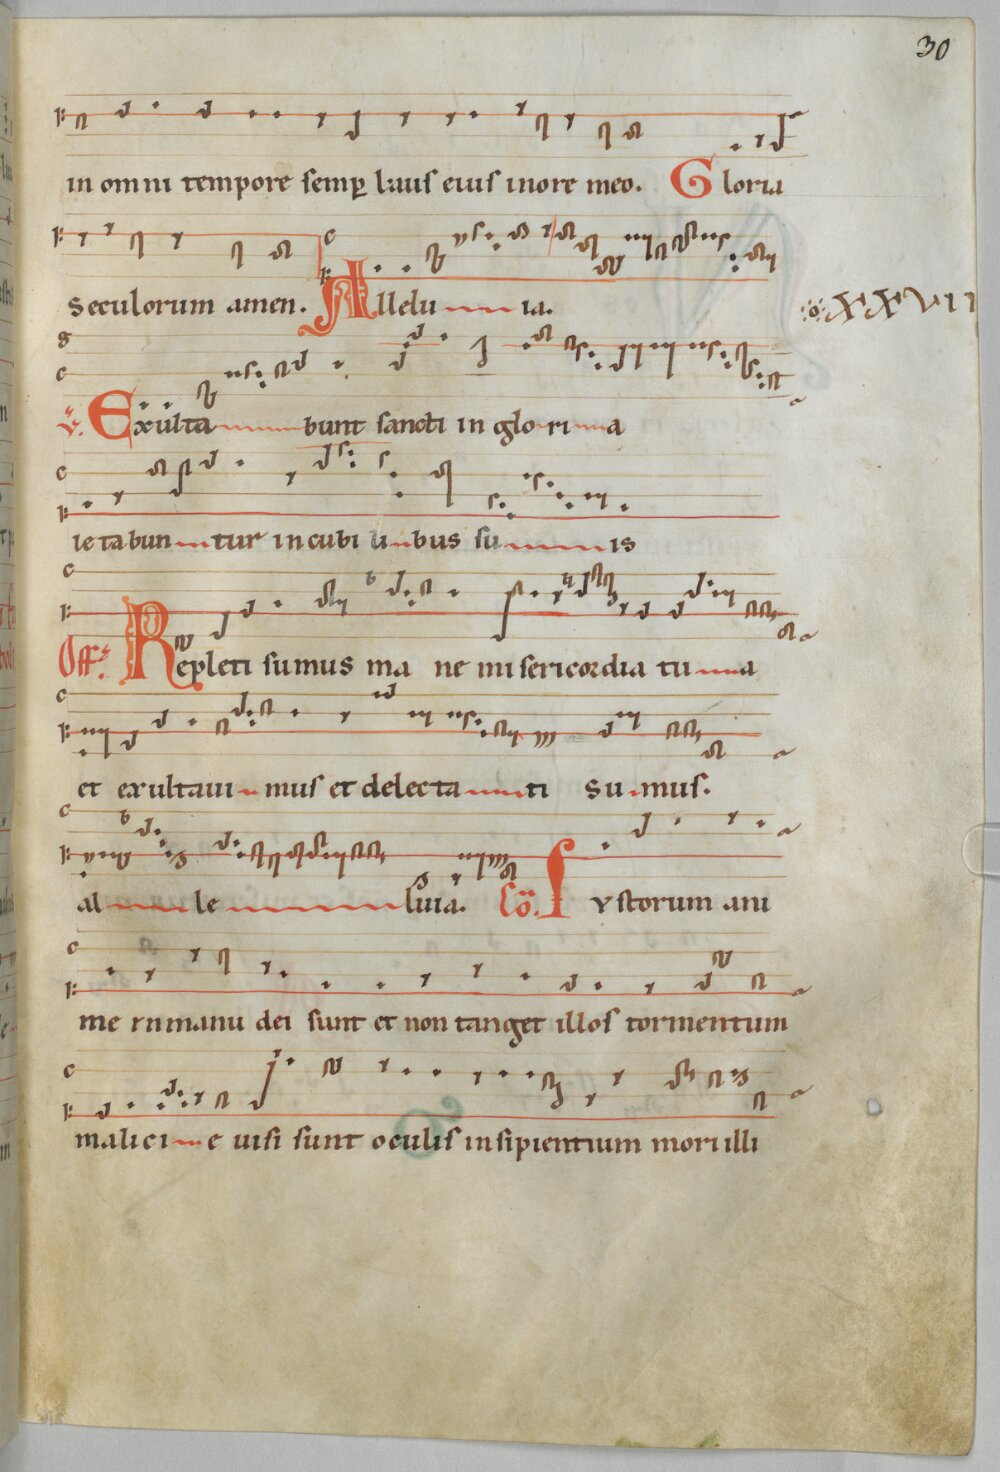 30
in omni tempore semp laus eius inore meo. Gloria
seculorum amen. Allelu ia.
XXVII
V. Exulta bunt sancti in glo ri a
letabun tur incubi li bus su is
Off. Repleti sumus ma ne misericordia tu a
et exultaui mus et delecta ti su mus.
al le luia. Co. Iustorum ani
me inmanu dei sunt et non tanget illos tormentum
malici e uisi sunt oculis insipientium mori illi